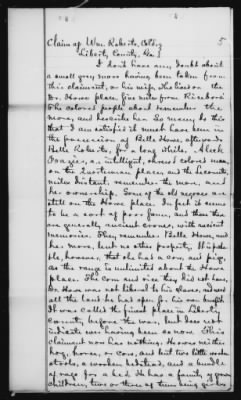 5
Claim of Wm. Roberts, Cold,
Liberty County, Ga.
I don't have any doubt about
a small grey mare having been taken from
this claimant, or his wife, who lived on the
Dr. Howe place five miles from Riceboro.
The colored people about remember the
mare, and describe her so many do this
that I am satisfied it must have been in
the possession of Bella Howe, afterwards
Bella Roberts, for a long while. Aleck
Frazier, an intelligent, shrewd colored man,
on the plantation place, and the
miles distant, remember the mare, and
her ownership. Some of the old negroes are
still on the Howe place. In fact it seems
to be a sort of poor farm, and those there
are generally ancient crones, with ancient
memories. They remember Bella Howe, and
her mare, but no other property. It is proba-
ble, however, that she had a cow, and pigs,
as the range is unlimited about the Howe
place. The corn and rice they did not have,
Dr. Howe was not liberal to his slaves, and used
all the land he had open for his own benefit
It was called the finest place in Liberty
county before the war, but does not
indicate ever having been so now. This
claimant now has nothing. He owns neither
hog, horse, or cow, and but two little wooden
stools, a wooden bedstead, and a bundle
of rags for a bed. He has a family of seven
children, two or three of them being girls